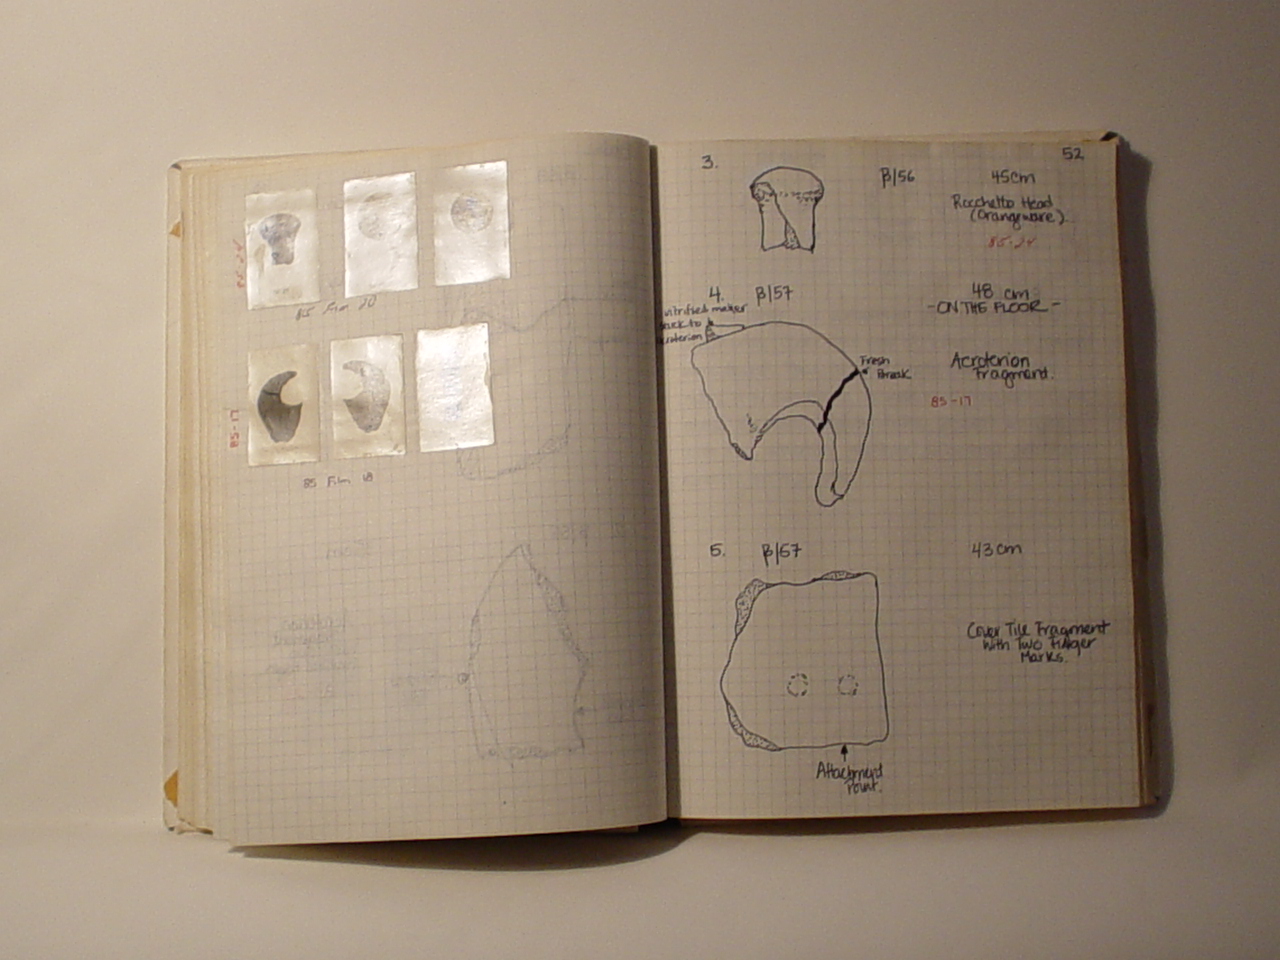 85-24
85 Film 20
85-17
85 Film 18
52
3.
β/56
45cm
Rocchetto Head
(Orangeware).
85-24
4.
β/57
48 cm
-ON THE FLOOR-
vitrified matter
stuck to
acroterion
Fresh
Break
Acroterion
Fragment.
85-17
5.
β/57
43cm
Cover Tile Fragment
With Two Finger
Marks.
Attachment
Point.